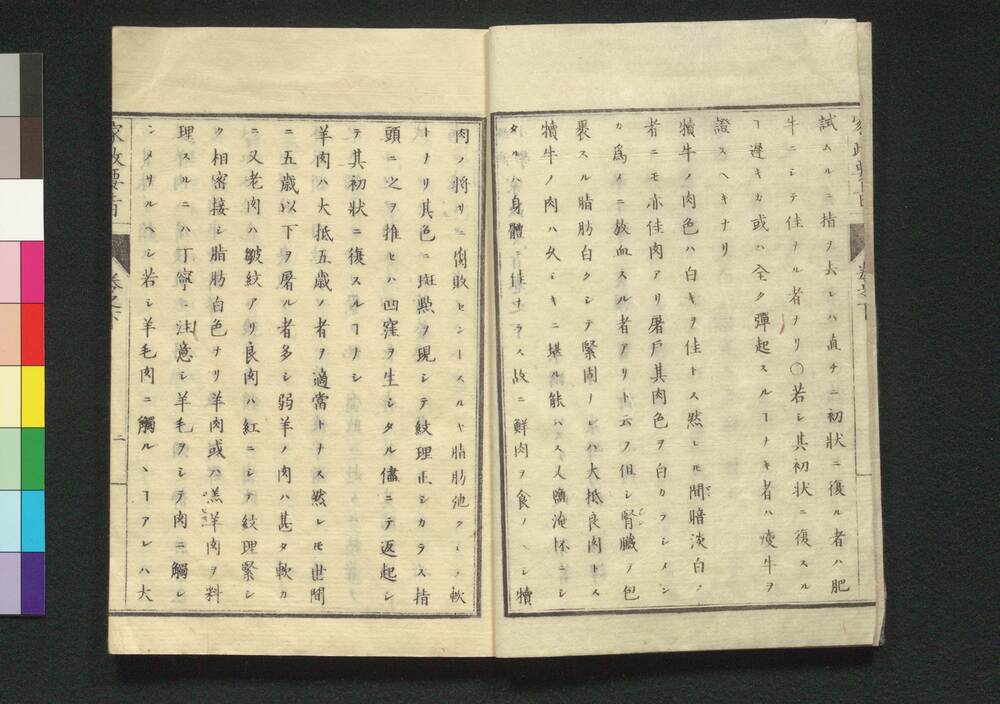 試ムルニ指ヲ去レハ直チニ初狀ニ復ル者ハ肥
牛ニシテ佳ナル者ナリ〇若シ其初狀ニ復スル
ヿ遲キカ或ハ全ク彈起スルヿナキ者ハ瘦牛ヲ
證スヘキナリ
犢牛ノ肉色ハ白キヲ佳トス然レ𪜈間暗淡白ノ
者ニモ亦佳肉アリ屠戶其肉色ヲ白カラシメン
カ爲メニ放血スル者アリト云フ但シ腎臟ノ包
裹スル脂肪白クシテ緊固ナレハ大抵良肉トス
犢牛ノ肉ハ久シキニ堪ル能ハス又
タルハ身體ニ佳ナラス故ニ鮮肉ヲ食ノヘシ犢
家政要旨 卷之下 二
肉ノ將サニ腐敗セントスルヤ脂肪弛クシテ軟
トナリ其色ニ斑㸃ヲ現シテ紋理正シカラス指
頭ニ之ヲ推セハ凹窪ヲ生シタル儘ニテ返起シ
テ其初狀ニ復スルヿナシ
羊肉ハ大抵五歲ノ者ヲ適當トナス然レモ世間
ニ五歲以下ヲ屠ル者多シ弱羊ノ肉ハ甚タ軟カ
ニ又老肉ハ皺紋アリ良肉ハ紅ニシテ紋理緊シ
ク相密接シ脂肪白色ナリ羊肉或ハ羔羊肉ヲ料
理スルニハ丁寧ニ注意シ羊毛ヲシテ肉ニ觸レ
シメサルヘシ若シ羊毛肉ニ觸ルヽヿアレハ大